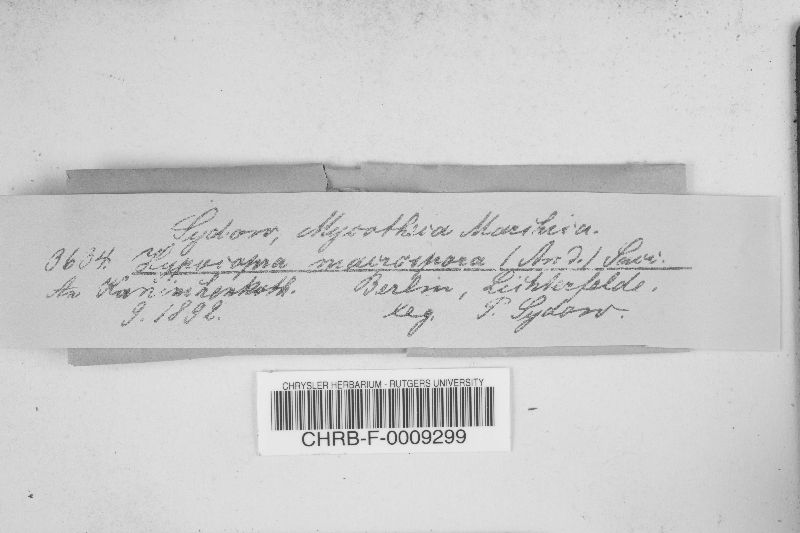 Sydow, Mycotheca Marchica.
3634. Hypocopra macrospora (Awd.) Sacc.
An Kaninchenkoth. Berlin, Lichterfelde.
9. 1892. leg. P. Sydow.
CHRYSLER HERBARIUM - RUTGERS UNIVERSITY
CHRB-F-0009299